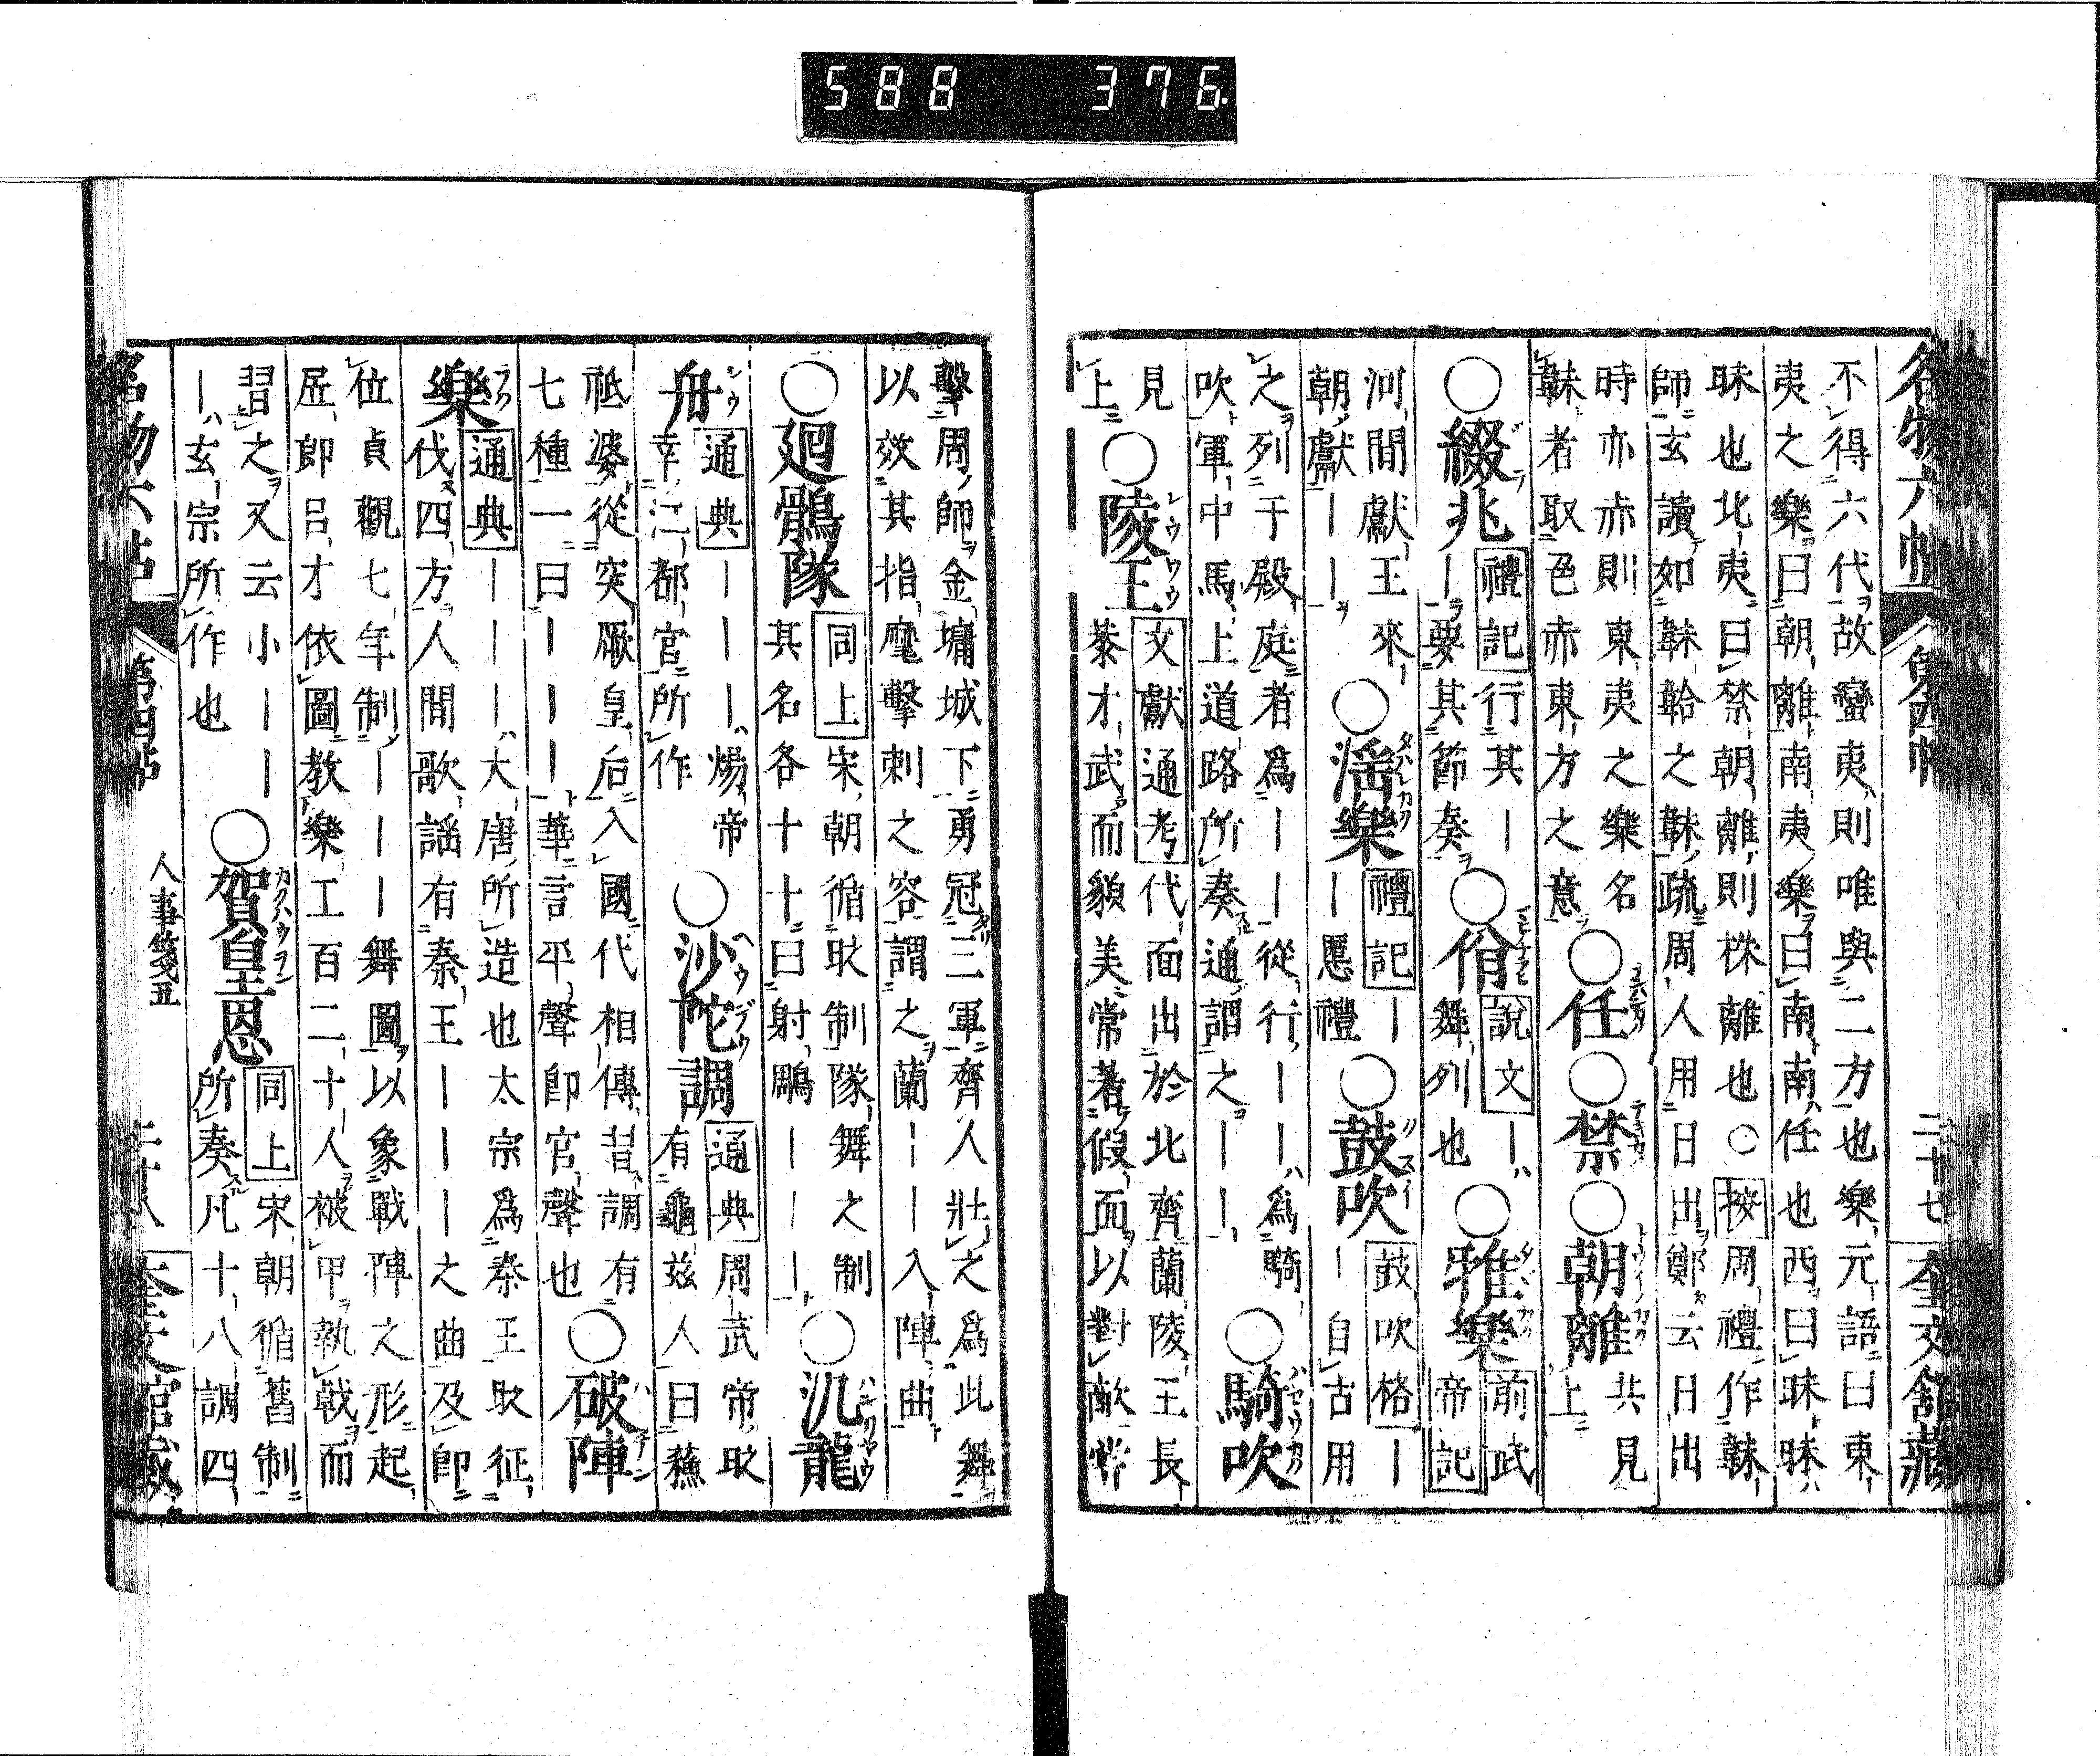 588 376
名物六帖 第四帖 二十七 奎文舘藏
不得六代故蠻夷則唯與二方也樂元語曰東
夷之樂曰朝離南夷樂曰南南任也西曰昧昧
昧也北夷曰禁朝離則株離也○按周禮作韎
師玄讀如韎韐之韎疏周人用日出鄭云日出
時亦赤則東夷之樂名
韎者取色赤東方之意
○任○禁○朝離 共見上
○綴兆 禮記 行其ー
ー要其節奏
○佾 說文 ーハ
舞列也
○雅樂 前武帝記
河間獻王來
朝獻ーー
○淫樂 禮記 ー
ー慝禮
○鼓吹 鼓吹格 ー
ー自古用
之列于殿庭者爲ーー從行ーーハ爲騎
吹軍中馬上道路所奏通謂之ーー
○騎吹
見上
○陵王 文獻通考 代面出於北齊蘭陵王長
恭才武而貌美常著假面以對敵嘗
擊周師金墉城下勇冠三軍齊人壯之爲此舞
以效其指麾擊刺之容謂之蘭ーー入陣曲
○𢌞鶻隊 同上 宋朝循取制隊舞之制
其名各十十曰射鵰ーーー
○汎龍
舟 通典 ーーーハ煬帝
幸江都官所作
○沙陀調 通典 周武帝取
有龜兹人曰蘇
祗婆從突厥皇后入國代相傳昔調有
七種一曰ーーー華言平聲卽官聲也
○破陣
樂 通典 ーーーハ大唐所造也太宗爲秦王取征
伐四方人間歌謡有秦王ーーー之曲及卽
位貞觀七年制ーーー舞圖以象戰陣之形起
居郎呂才依圖教樂工百二十人被甲執戟而
習之又云小ーー
ーハ玄宗所作也
○賀皇恩 同上 宋朝循舊制
所奏凡十八調四
名物六帖 第四帖 人事箋五 二十八 奎文舘藏